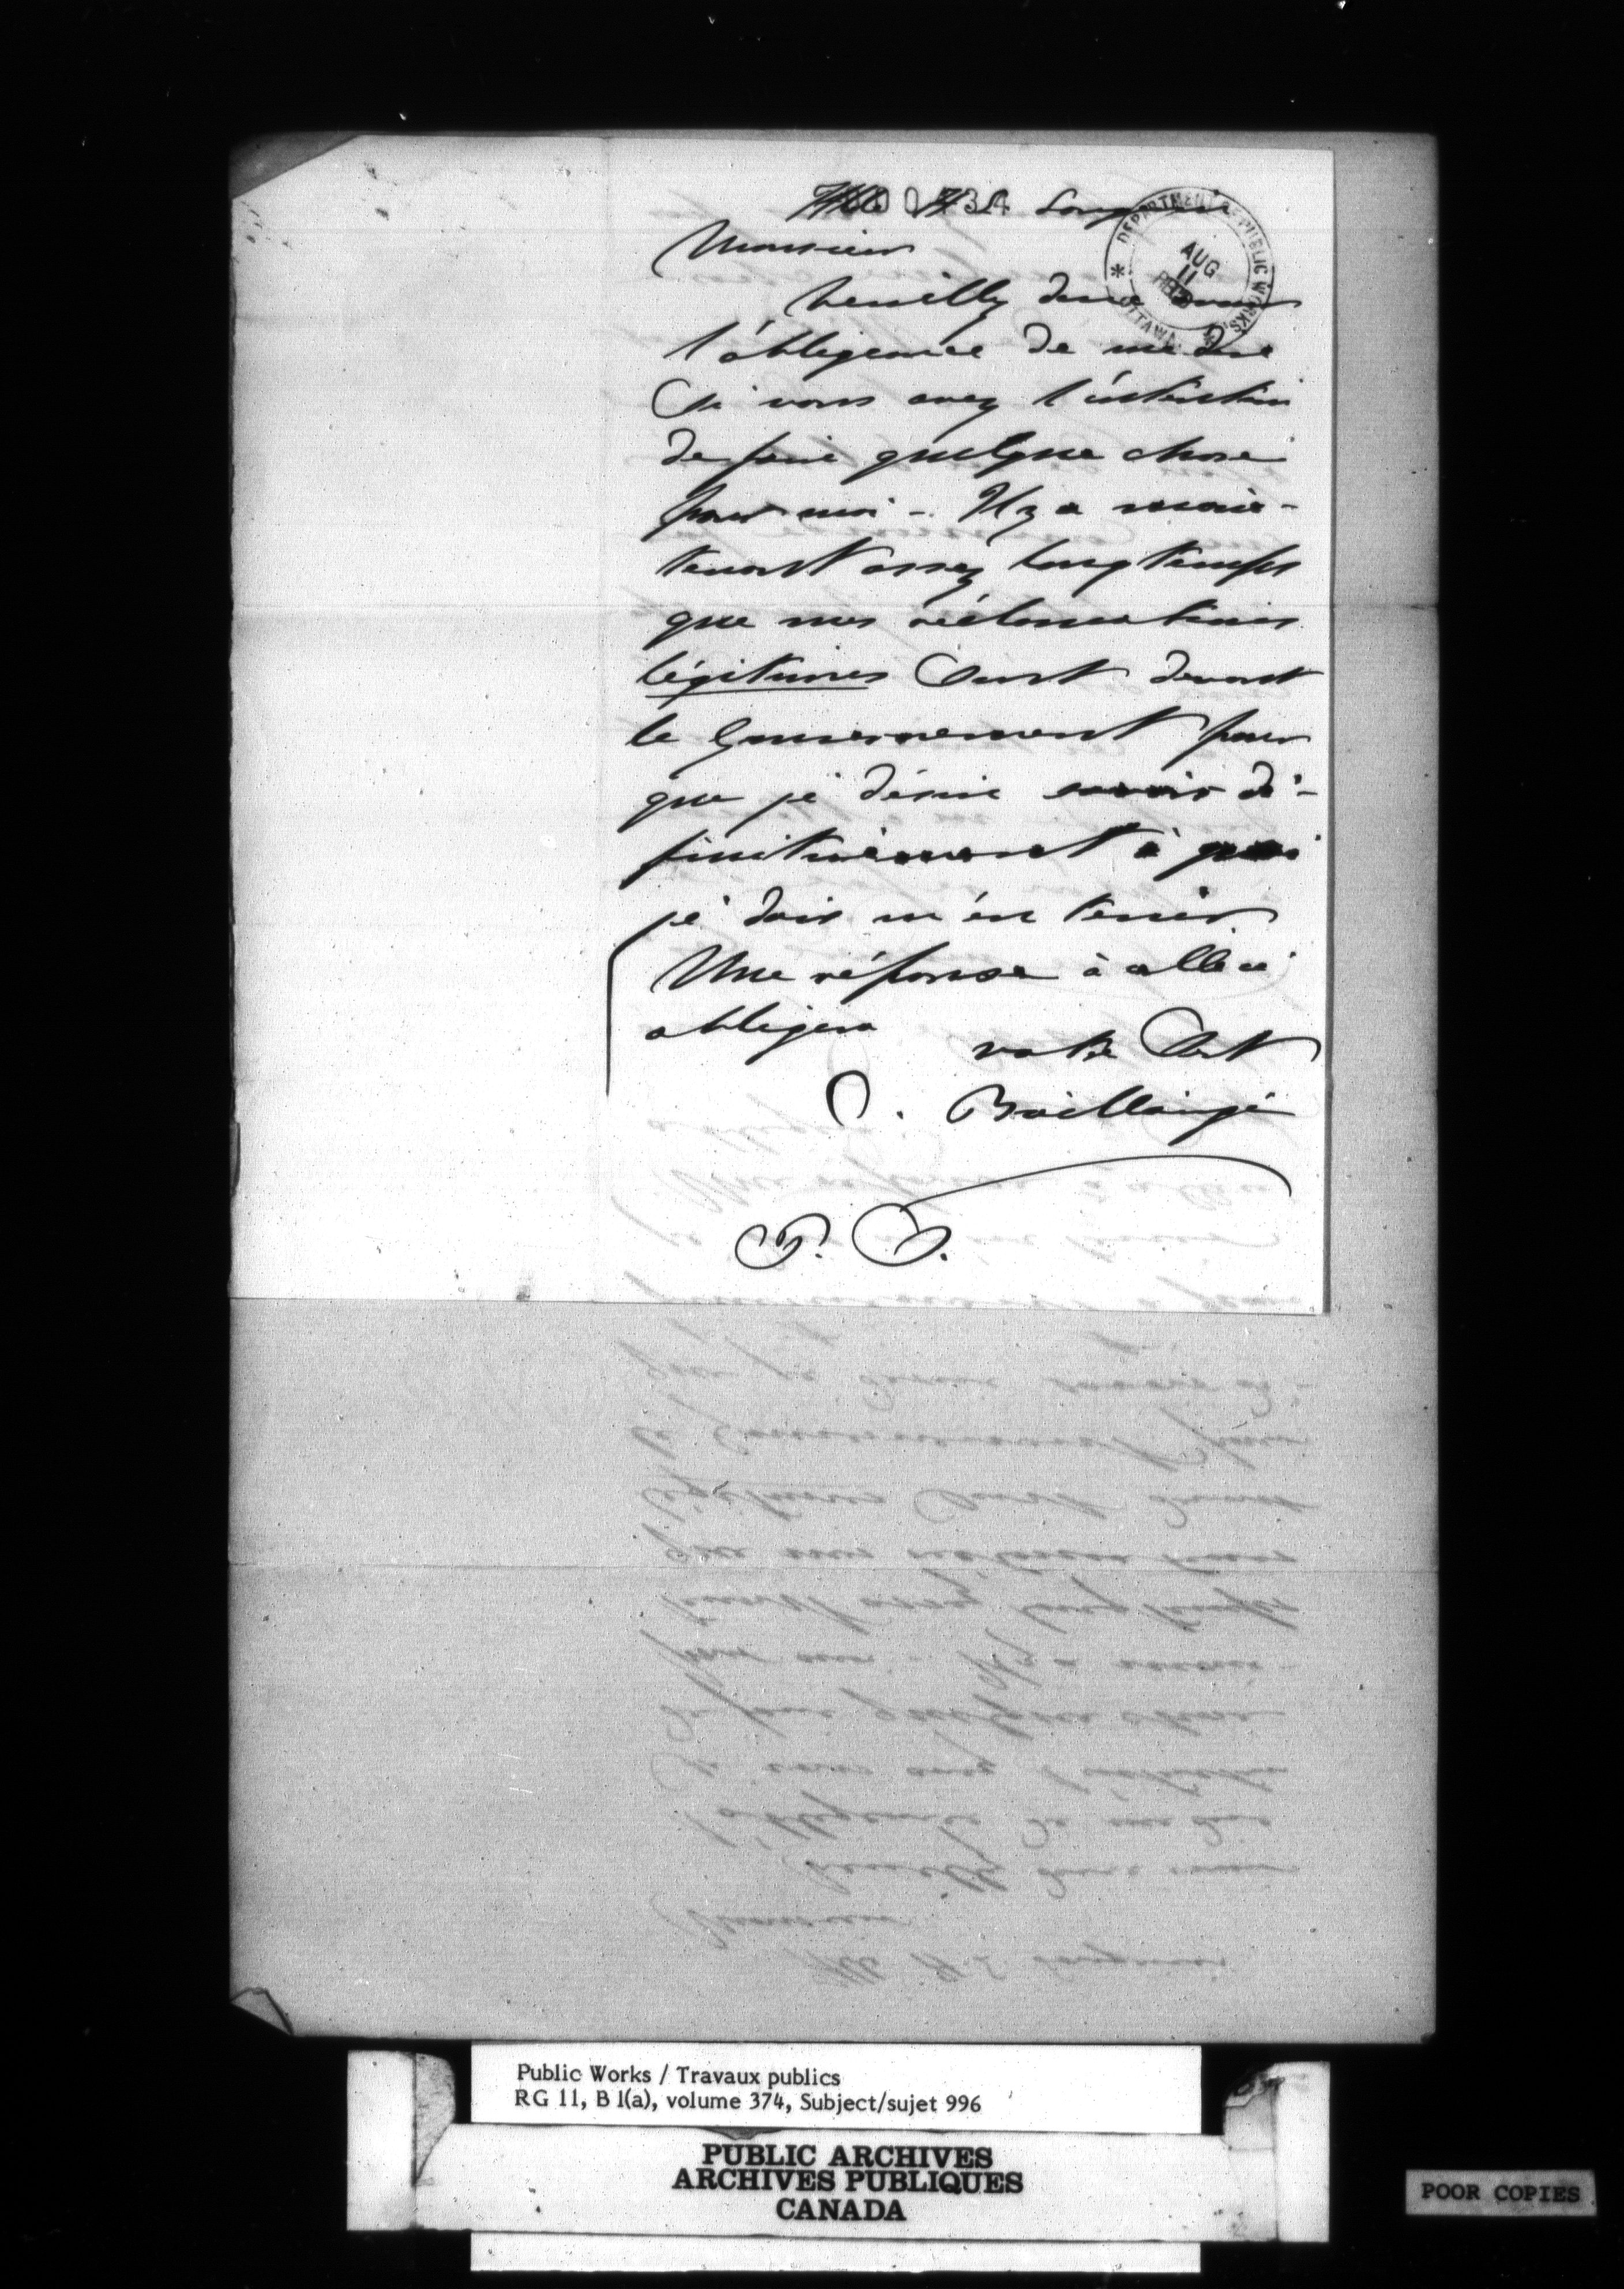 Hble H. L. Langevin
DEPARTMENT OF PUBLIC WORKS, OTTAWA
AUG
11
Monsieur
Veuillez donc avoir
l'obligeance de me dire
Si vous avez l'intention
de faire quelque chose
pour moi - Il y a main-
tenant assez longtemps
que mes réclamations
légitimes Sont devant
le Gouvernement pour
que je désire savoir dé-
finitivement à quoi
je dois m'en tenir
Une réponse à celle ci
obligera
votre Svt
C. Baillairgé
Public Works / Travaux publics
RG 11, B 1(a), volume 374, Subject/sujet 996
PUBLIC ARCHIVES
ARCHIVES PUBLIQUES
CANADA
POOR COPIES